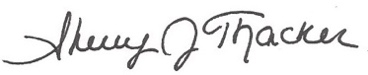 Sherry J Thacker